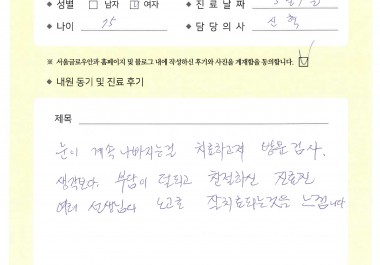 ◆ 성별 남자 여자 ◆ 진료날짜
◆ 나이 75 ◆ 담당의사 신혁
※ 서울글로우안과 홈페이지 및 블로그 내에 작성하신 후기와 사진을 게재함을 동의합니다.
◆ 내원 동기 및 진료 후기
제목
눈이 계속 나빠지는걸 치료하고자 방문 검사.
생각보다. 부담이 덜되고 친절하신 진료진
여러 선생님의 노고로 잘치료되는것을 느낍니다